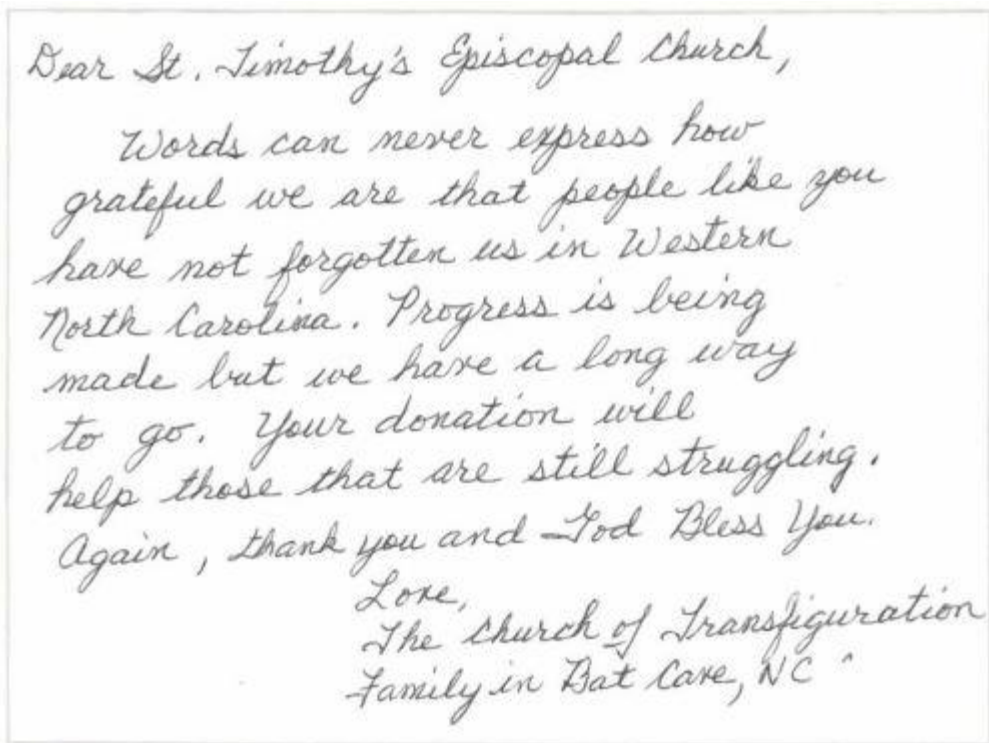 Dear St. Timothy's Episcopal Church,
Words can never express how
grateful we are that people like you
have not forgotten us in Western
North Carolina. Progress is being
made but we have a long way
to go. Your donation will
help those that are still struggling.
Again, thank you and God Bless You.
Love,
The Church of Transfiguration
Family in Bat Cave, NC